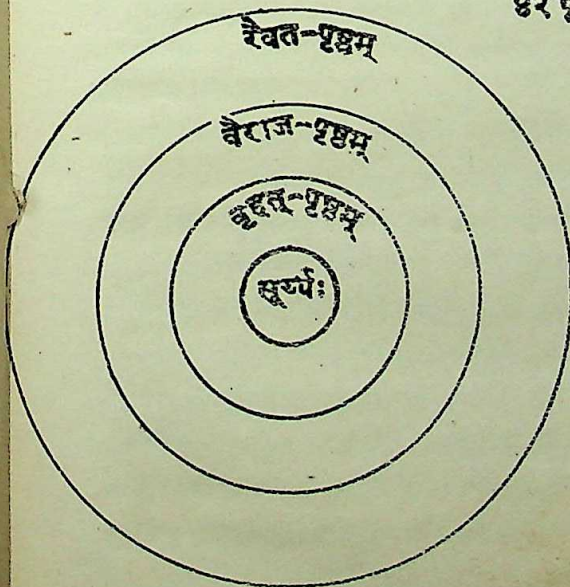 रैवत-पृष्ठम्
वैराज-पृष्ठम्
वृहत्-पृष्ठम्
सूर्य्यः